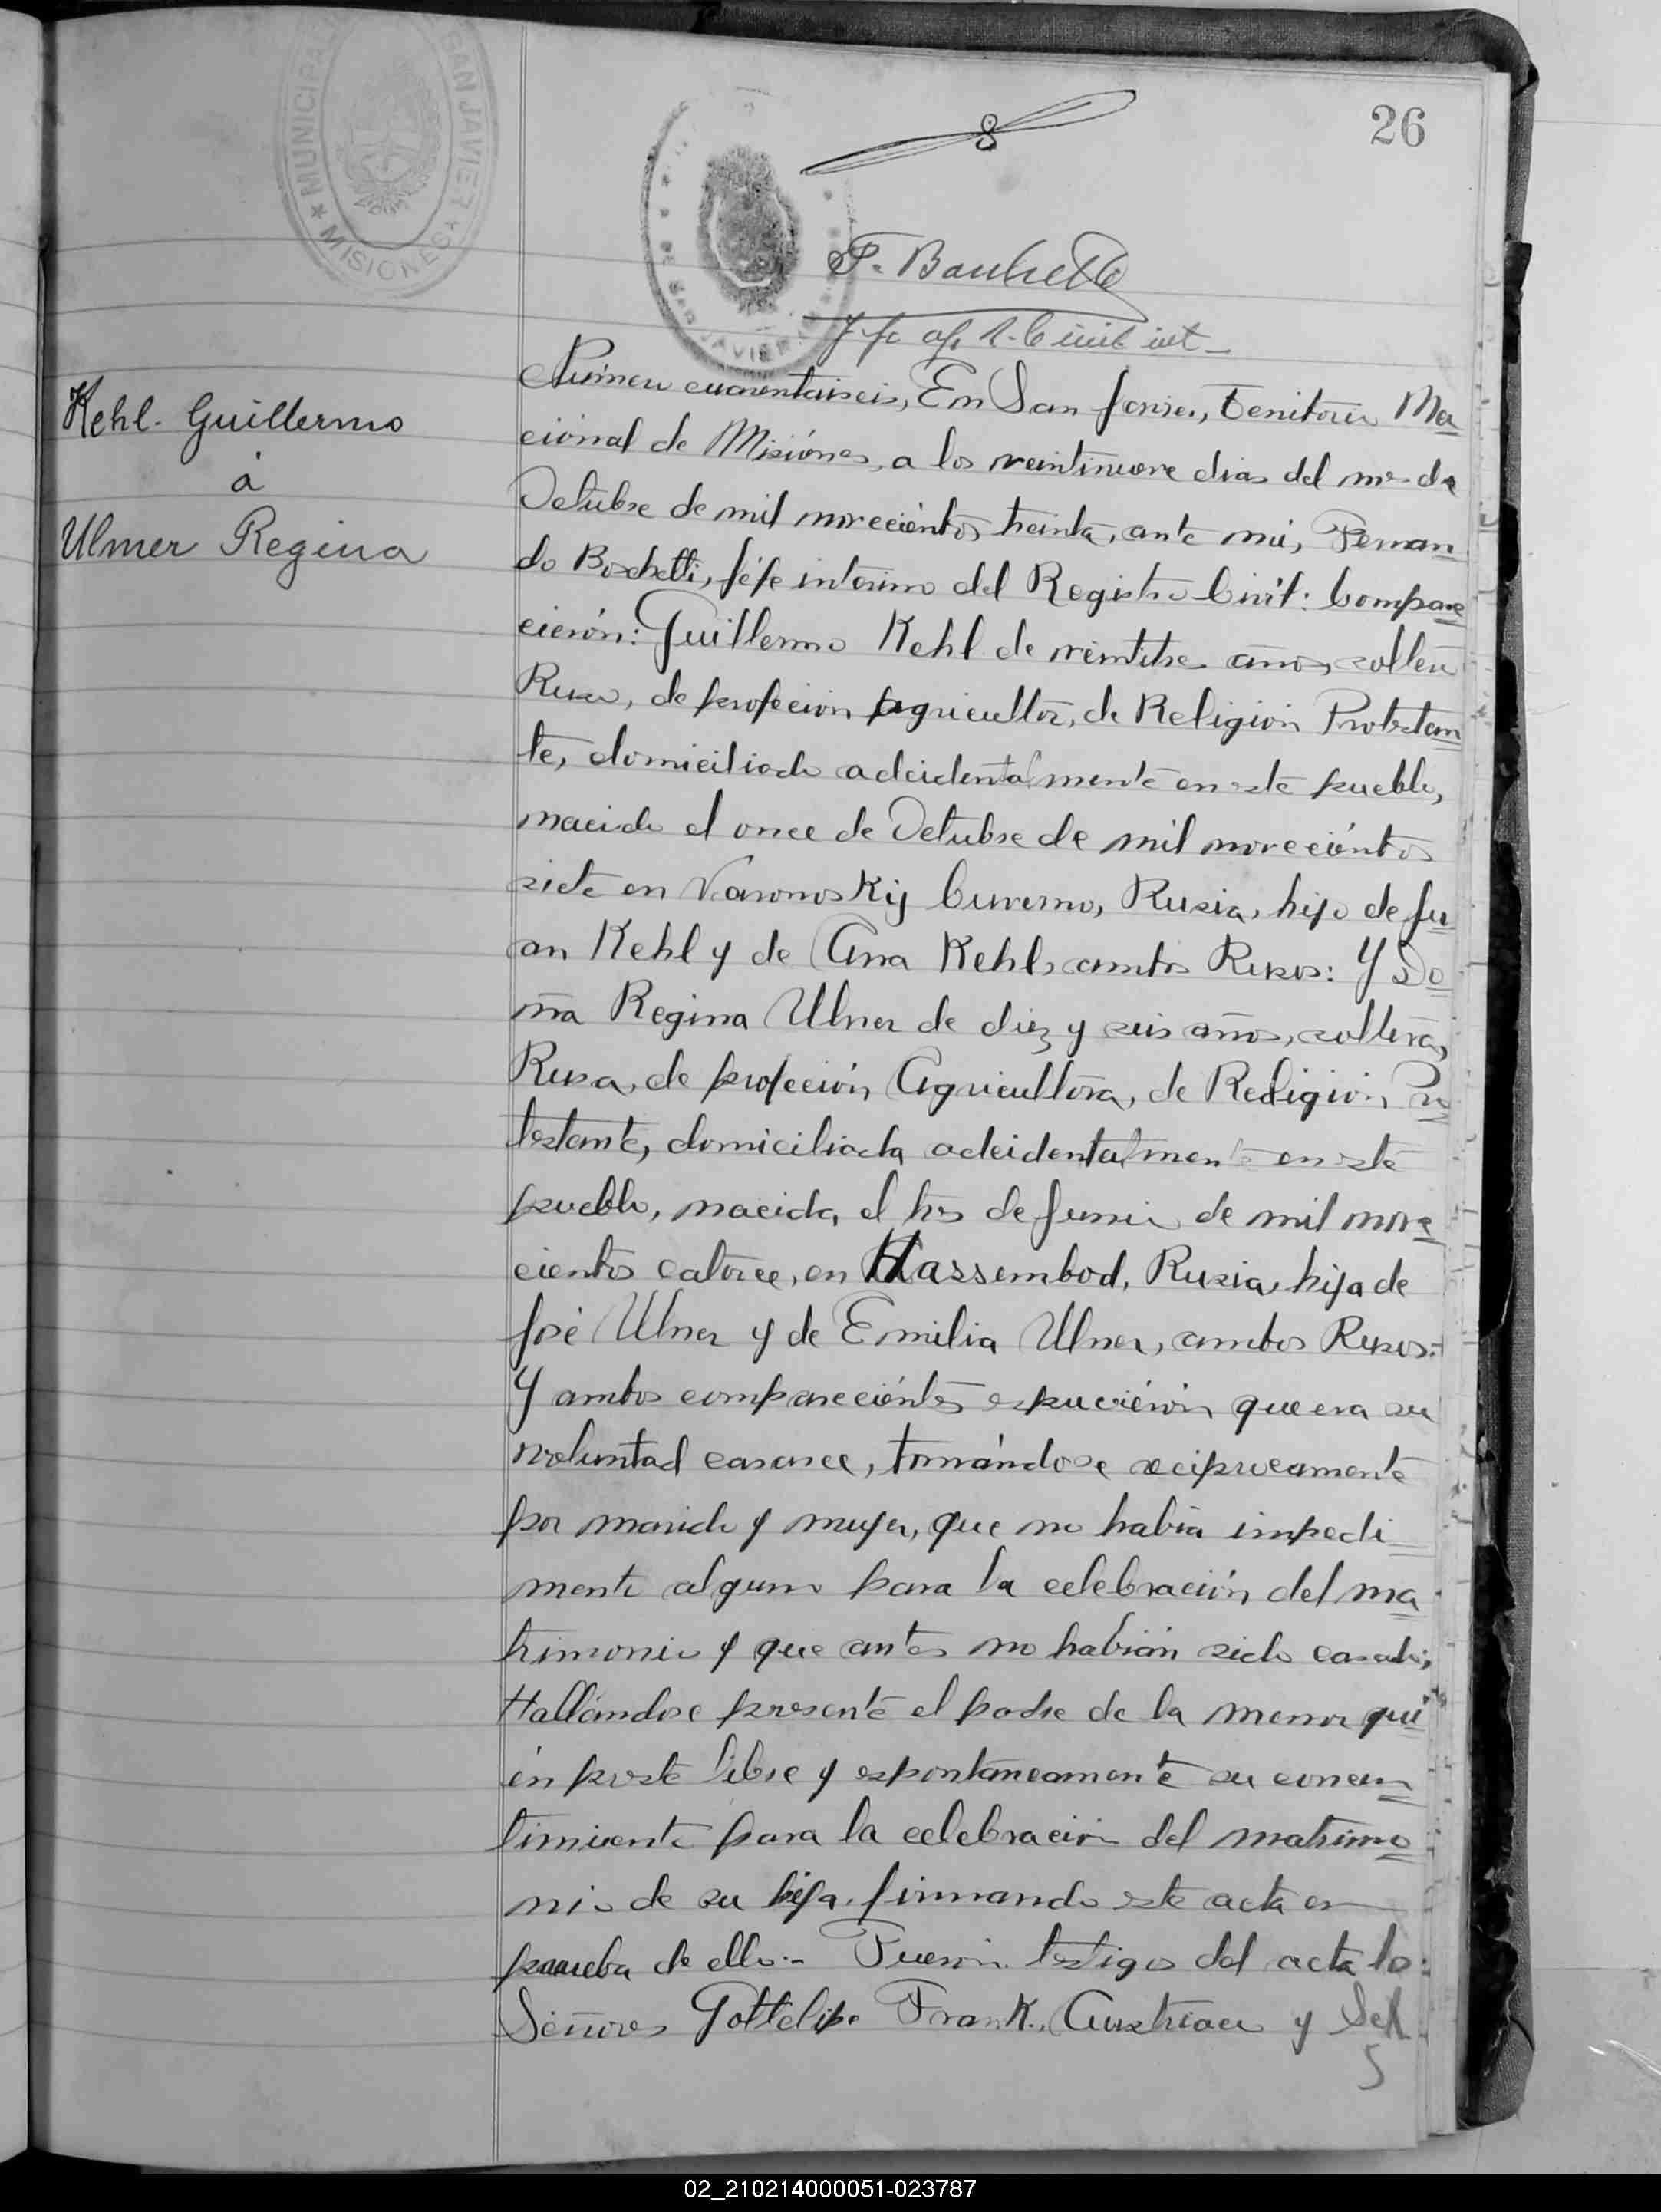 26
MUNICIPA SAN JAVIER
MISIONES
SAN JAVIER
Kehl. Guillermo
á
Ulmer Regina
Número cuarentaiseis, En San Javier, Territorio Na
cional de Misiónes, a los veintinueve dias del mes de
Octubre de mil novecientos treinta, ante mi, Fernan
do Boschetti, Jéfe interino del Registro Civil: Compare
cierón: Guillermo Kehl de veintitres años, soltero
Ruso, de profecion Agricultor, de Religion Protestan
te, domiciliado adcidentalmente en este pueblo,
nacido el once de Octubre de mil novecientos
siete en Varonoskij Cuverno, Rusia, hijo de Ju
an Kehl y de Ana Kehl, ambos Rusos: Y Do
ña Regina Ulner de diez y seis años, soltera,
Rusa, de profeción Agricultora, de Religion Pro
testante, domiciliada adcidentalmente en este
pueblo, nacida, el tres de Junio de mil nove
cientos catorce, en Hassembod, Rusia, hija de
José Ulner y de Emilia Ulner, ambos Rusos:
Y ambos comparecientes espucierón que era su
voluntad casarce, tomándose reciprocamente
por marido y mujer, que no habia impedi
mento alguno para la celebración del ma
trimonio y que antes no habián sido casados;
Hallándose presente el padre de la menor qui
én preste libre y espontaneamente su concen
timiento para la celebracion del matrimo
nio de su hija. firmando este acta en
prueba de ello.- Fueron testigos del acta los
Señores Gottelipe Frank, Austriaco y Sel
5
02_210214000051-023787